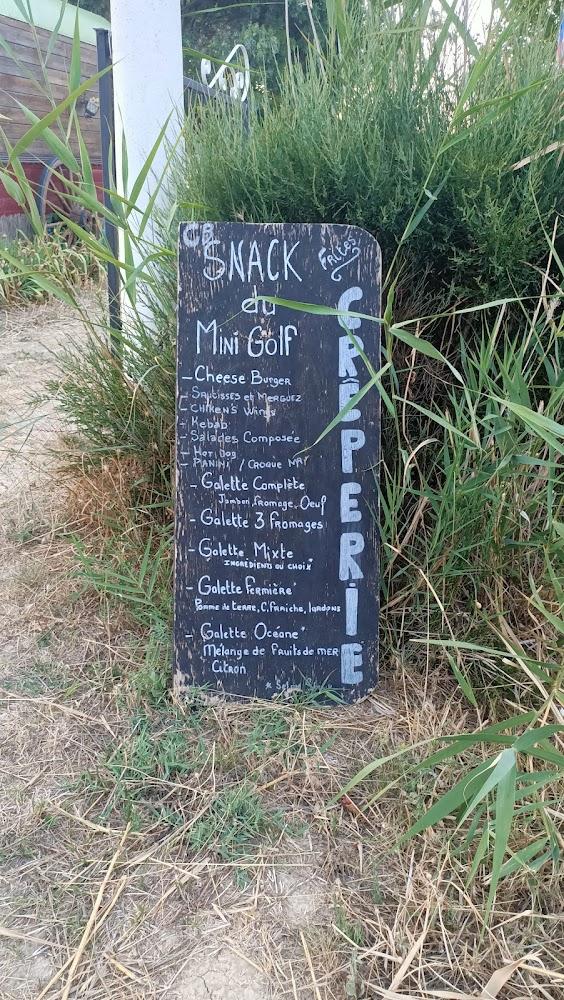 CB
SNACK
du
MINI GOLF
Frites
CRÊPERIE
- Cheese Burger
- Saucisses et Merguez
- Chiken's Wings
- Kebab
- Salades Composée
- Hot Dog
- Panini / Croque Mr
- Galette Complète
Jambon, fromage, Oeuf
- Galette 3 fromages
- Galette Mixte
Ingrédients au choix*
- Galette Fermière*
Pomme de terre, C. fraiche, lardons
- Galette Océane*
Mélange de fruits de mer
Citron